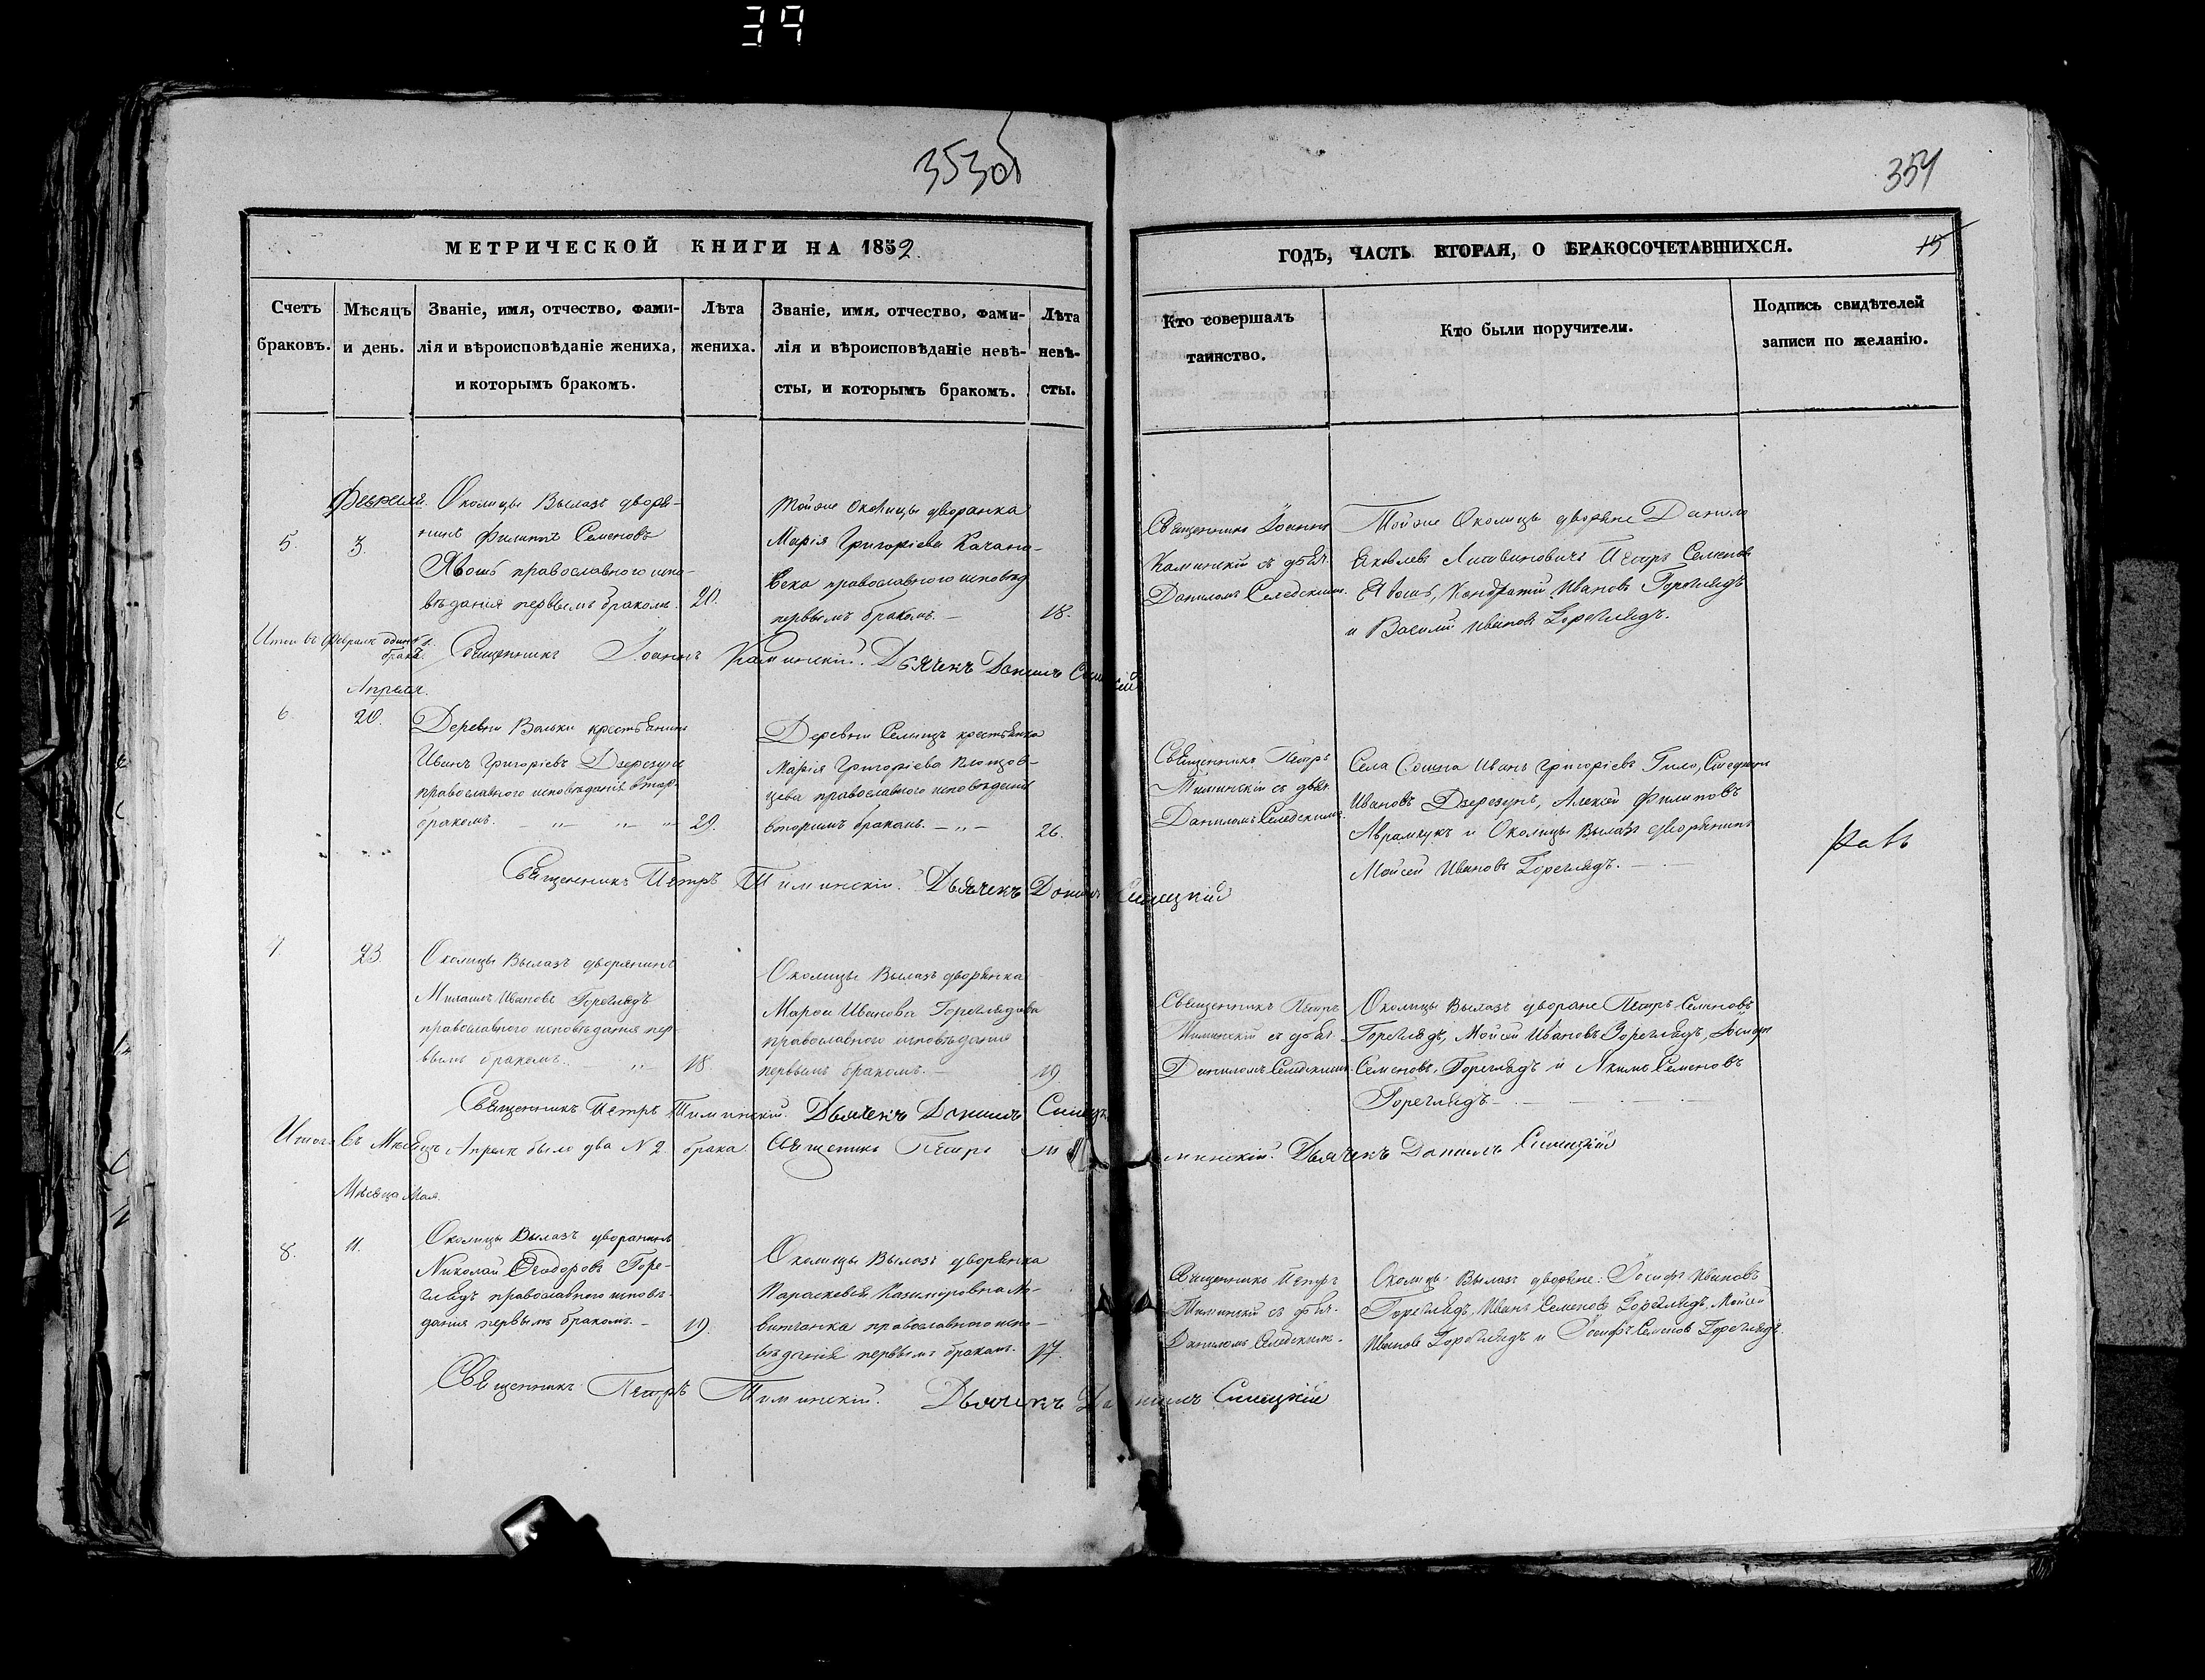 39
353об
354
МЕТРИЧЕСКОЙ КНИГИ НА 1852.
ГОДЪ, ЧАСТЬ ВТОРАЯ, О БРАКОСОЧЕТАВШИХСЯ.
15
Счетъ
браковъ.
Мѣсяцъ
и день.
Званіе, имя, отчество, фами-
лія и вѣроисповѣданіе жениха,
и которымъ бракомъ.
Лѣта
жениха.
Званіе, имя, отчество, фами-
лія и вѣроисповѣданіе невѣ-
сты, и которымъ бракомъ.
Лѣта
невѣ-
сты.
Кто совершалъ
таинство.
Кто были поручители.
Подпись свидѣтелей
записи по желанію.
Февраля.
5.
3.
Околицы Вылазъ дворя-
нинъ Филиппъ Семеновъ
Явошъ православнаго испо-
вѣданія первымъ бракомъ.
20.
Тойже Околицы дворянка
Марія Григоріева Качано-
вска православнаго исповѣд
первымъ бракомъ. —
18.
Священникъ Іоаннъ
Каминскій съ дьяч.
Даниломъ Селецкимъ.
Тойже Околицы дворяне Данило
Яковлевъ Литвиновичъ Петръ Семеновъ
Явошъ, Кондратій Ивановъ Гореглядъ
и Василій Ивановъ Гореглядъ.
Итого въ Февралѣ одинъ №1.
бракъ.
Священникъ Іоаннъ Каминскій. Дьячекъ Данилъ
Апреля.
6.
20.
Деревни Вольки крестьянинъ
Иванъ Григоріевъ Дзерезунъ
православнаго исповѣданія втор.
бракомъ. — „— „— „—
29.
Деревни Селищъ крестьянка
Марія Григоріева
православнаго исповѣданія
вторымъ бракомъ. — „ —
26.
Священникъ Петръ
Тиминскій съ дьяч.
Даниломъ Селецкимъ.
Села Сошна Иванъ Григоріевъ Гило,
Ивановъ Дзерезунъ, Алексѣй Филиповъ
Аврамчукъ и Околицы Вылазъ дворянинъ
Мойсей Ивановъ Гореглядъ. — —
Священникъ Петръ Тиминскій. Дьячекъ Данилъ Силецкій
7.
23.
Околицы Вылазъ дворянинъ
Михаилъ Ивановъ Гореглядъ
православнаго исповѣданія пер-
вымъ бракомъ. „—
18.
Околицы Вылазъ дворянка
Марѳа Иванова Гореглядова
православнаго исповѣданія
первымъ бракомъ. —
19
Священникъ Петръ
Тиминскій съ дьяч.
Даниломъ Селецкимъ.
Околицы Вылазъ дворяне Петръ Семеновъ
Гореглядъ, Мойсей Ивановъ Гореглядъ, Іосифъ
Семеновъ, Гореглядъ и Якимъ Семеновъ
Гореглядъ — — — —
Священникъ Петръ Тиминскій. Дьячекъ Данилъ
Итого въ Мѣсяцѣ Апрелѣ было два №2. брака Священникъ Петръ Тиминскій. Дьячекъ Данилъ Силецкій
Мѣсяца Мая.
8.
11.
Околицы Вылазъ дворянинъ
Николай Ѳеодоровъ Горе-
глядъ православнаго исповѣ-
данія первымъ бракомъ. —
19.
Околицы Вылазъ дворянка
Параскевія Казимировна
православнаго испо-
вѣданія первымъ бракомъ.
17.
Священникъ Петръ
Тиминскій съ дьяч.
Даниломъ Селецкимъ.
Околицы Вылазъ дворяне: Іосифъ Ивановъ
Гореглядъ, Иванъ Семеновъ Гореглядъ, Мойсей
Ивановъ Гореглядъ и Іосифъ Семеновъ Гореглядъ.
Священникъ Петръ Тиминскій. Дьячекъ Данилъ Силецкій